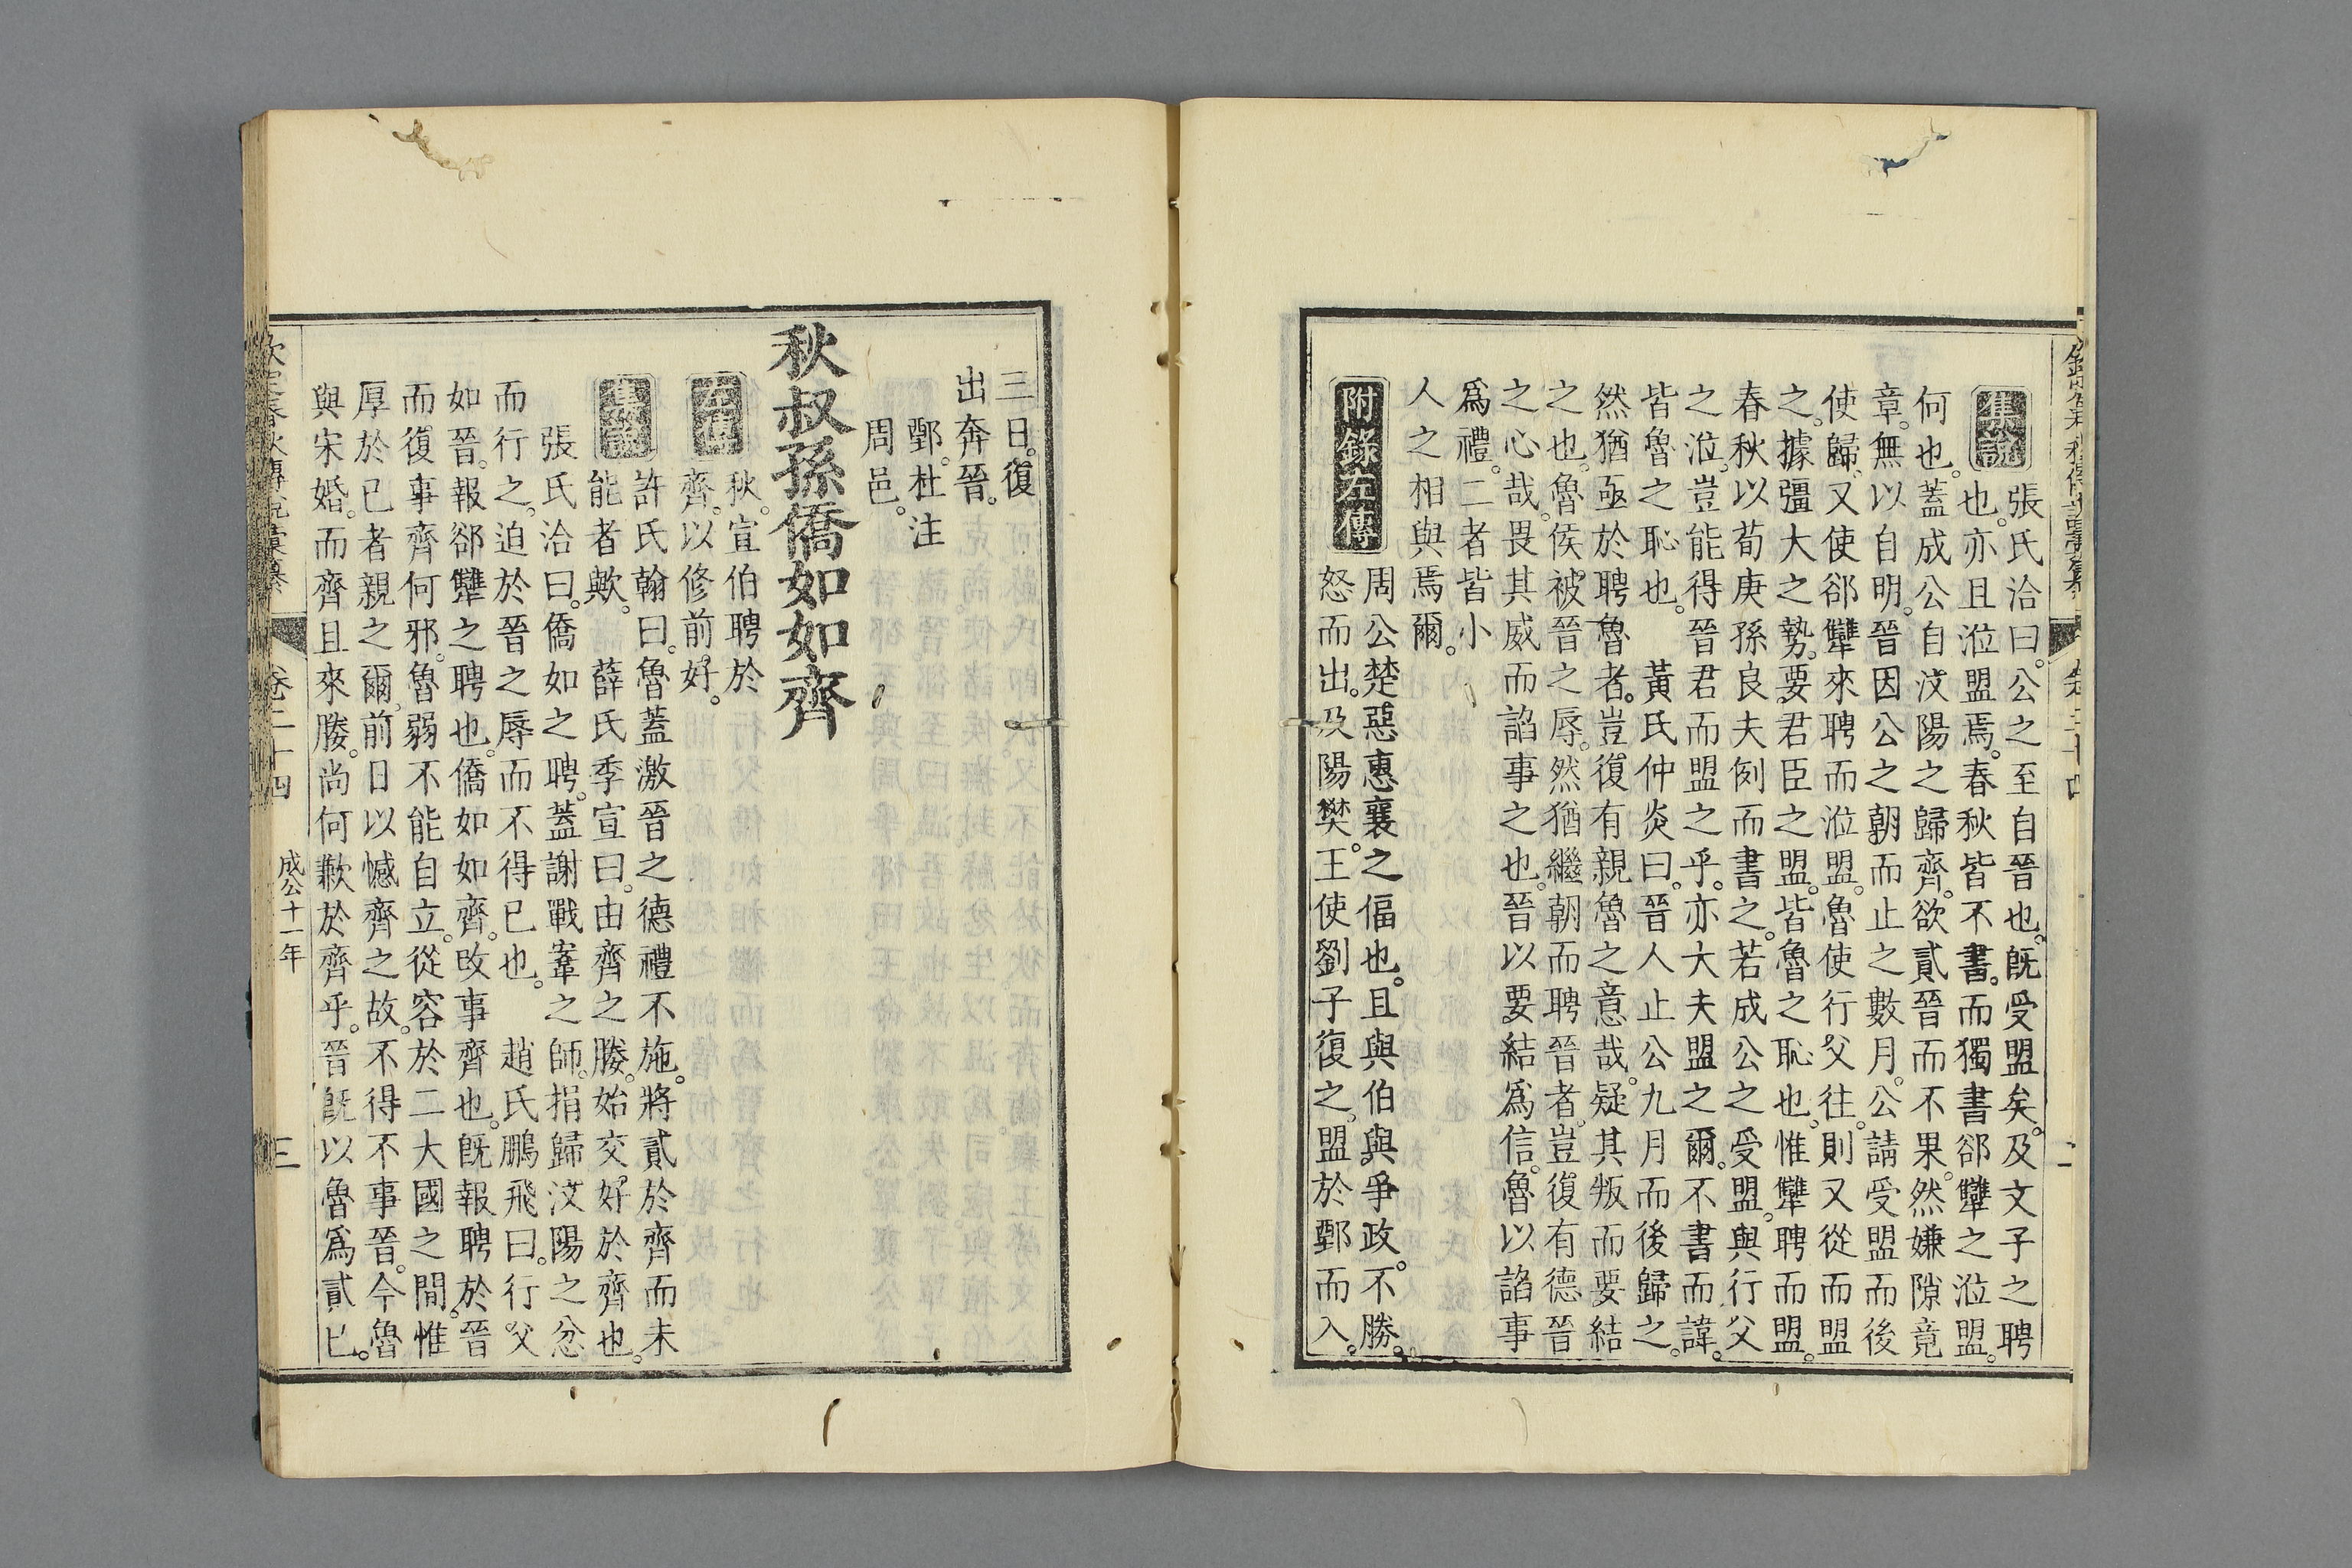 集說
張氏洽曰公之至自晉也旣受盟矣及文子之聘
也亦且涖盟焉春秋皆不書而獨書郤犫之涖盟
何也蓋成公自汶陽之歸齊欲貳晉而不果然嫌隙竟
章無以自明晉因公之朝而止之數月公請受盟而後
使歸又使郤犫來聘而涖盟魯使行父往則又從而盟
之據彊大之勢要君臣之盟皆魯之恥也惟犫聘而盟
春秋以荀庚孫良夫例而書之若成公之受盟與行父
之涖豈能得晉君而盟之乎亦大夫盟之爾不書而諱
皆魯之恥也 黃氏仲炎曰晉人止公九月而後歸之
然猶亟於聘魯者豈復有親魯之意哉疑其叛而要結
之也魯侯被晉之辱然猶繼朝而聘晉者豈復有德晉
之心哉畏其威而諂事之也晉以要結爲信魯以諂事
爲禮二者皆小
人之相與焉爾
附錄左傳
周公楚惡惠襄之偪也且與伯與爭政不勝
怒而出及陽樊王使劉子復之盟於鄄而入
三日復
出奔晉
鄄杜注
周邑
秋叔孫僑如如齊
左傳
秋宣伯聘於
齊以修前好
集說
許氏翰曰魯蓋激晉之德禮不施將貳於齊而未
能者歟 薛氏季宣曰由齊之媵始交好於齊也
張氏洽曰僑如之聘蓋謝戰鞌之師捐歸汶陽之忿
而行之迫於晉之辱而不得已也 趙氏鵬飛曰行父
如晉報郤犫之聘也僑如如齊改事齊也旣報聘於晉
而復事齊何邪魯弱不能自立從容於二大國之間惟
厚於已者親之爾前日以憾齊之故不得不事晉今魯
與宋婚而齊且來媵尚何歉於齊乎晉旣以魯爲貳已
欽定春秋傳說彙纂
卷二十四
成公十一年
三